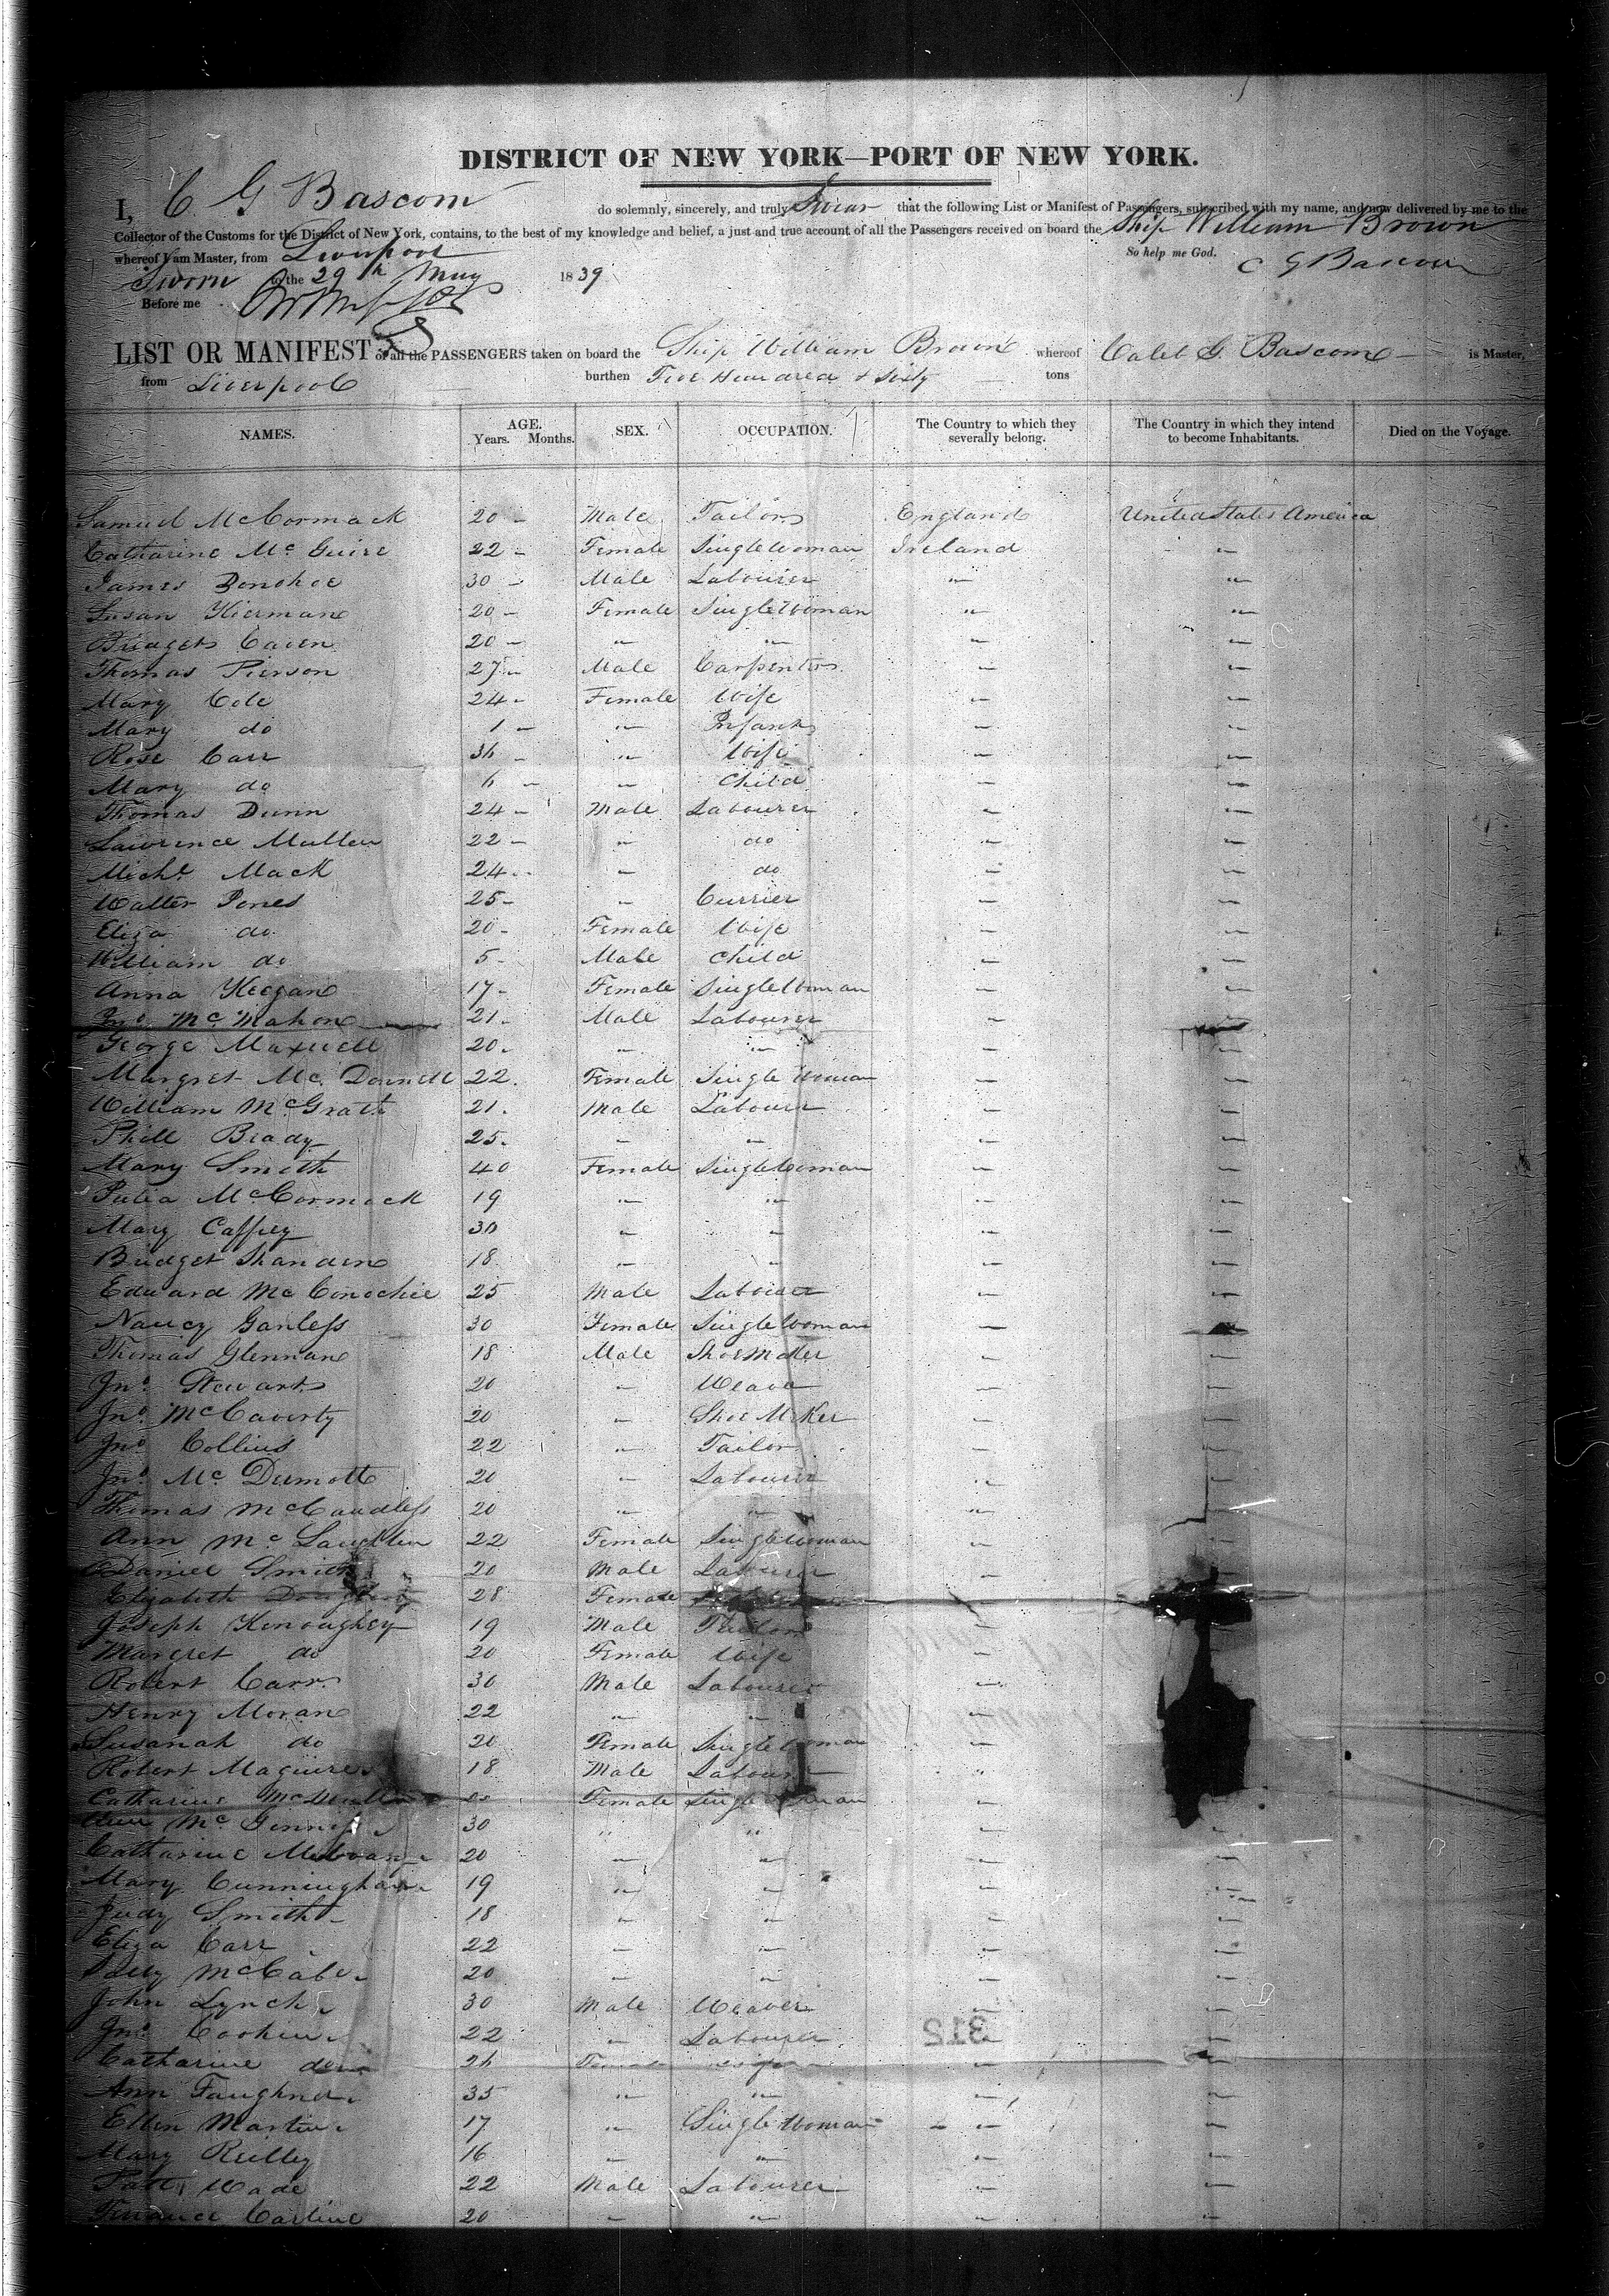 DISTRICT OF NEW YORK—PORT OF NEW YORK.
I, C G Bascom do solemnly, sincerely, and truly Swear that the following List or Manifest of Passengers, subscribed with my name, and now delivered by me to the
Collector of the Customs for the District of New York, contains, to the best of my knowledge and belief, a just and true account of all the Passengers received on board the Ship William Brown
whereof I am Master, from Liverpool So help me God. C G Bascom
Sworn to the 29th May 1839
Before me
LIST OR MANIFEST of all the PASSENGERS taken on board the Ship William Brown whereof Caleb G. Bascom is Master,
from Liverpool burthen Five Hundred & Sixty tons
NAMES. AGE. Years. Months. SEX. OCCUPATION. The Country to which they severally belong. The Country in which they intend to become Inhabitants. Died on the Voyage.
Samuel McCormack 20 Male Tailor England United States America
Catharine Mc Guire 22 Female Single Woman Ireland "
James Donohoe 30 Male Labourer " "
Susan Kierman 20 Female Single Woman " "
Bridget Caven 20 " " " "
Thomas Pierson 27 Male Carpenter " "
Mary Cole 24 Female Wife " "
Mary do 1 " Infant " "
Rose Carr 36 " Wife " "
Mary do 6 " Child " "
Thomas Dunn 24 Male Labourer " "
Lawrence Mullen 22 " do " "
Michl Mack 24 " do " "
Walter Jones 25 " Currier " "
Eliza do 20 Female Wife " "
William do 5 Male Child " "
Anna Keegan 17 Female Single Woman " "
Jno Mc Mahon 21 Male Labourer " "
George Maxwell 20 " " " "
Margret Mc Donnell 22 Female Single Woman " "
William McGrath 21 Male Labourer " "
Phill Brady 25 " " " "
Mary Smith 40 Female Single Woman " "
Julia McCormack 19 " " " "
Mary Caffrey 30 " " " "
Bridget 18 " " " "
Edward Mc Conochie 25 Male Labourer " "
Nancy Ganless 30 Female Single Woman " "
Thomas Glennan 18 Male Shoemaker " "
Jno Stewart 20 " Weaver " "
Jno McCaverty 20 " Shoe Maker " "
Jno Collins 22 " Tailor " "
Jno Mc Dermott 20 " Labourer " "
Thomas McCandless 20 " " " "
Ann Mc Laughlin 22 Female Single Woman " "
Daniel Smith 20 Male Labourer " "
Elizabeth 28 Female "
Joseph Kenoughey 19 Male Tailor "
Margret do 20 Female Wife "
Robert Carr 30 Male Labourer "
Henry Moran 22 " " "
Susanah do 20 Female Single Woman "
Robert Maguire 18 Male Labourer "
Catharine McMullen Female Single Woman "
Ann Mc Ginness 30 " " " "
Catharine 20 " " " "
Mary Cunningham 19 " " " "
Judy Smith 18 " " " "
Eliza Carr 22 " " " "
McCabe 20 " " " "
John Lynch 30 Male Weaver " "
Jno 22 " Labourer " "
Catharine do 26 Female Wife " "
Ann Faughner 35 " " " "
Ellen Martin 17 " Single Woman " "
Mary Reilley 16 " " " "
Patt Wade 22 Male Labourer " "
Carline 20 " " " "
312